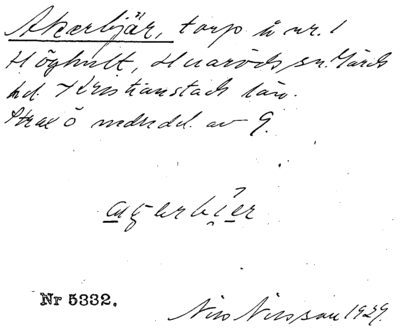 Akerbjär, torp å nr. 1
Höghult, Huaröds sn. Gärds
hd. Kristianstads län.
Strax Ö mdndel. av G.
agərbíer
Nr 5332.
Nils Nilsson 1929.